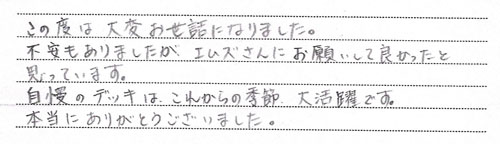 この度は大変お世話になりました。
不安もありましたが、エムズさんにお願いして良かったと
思っています。
自慢のデッキは、これからの季節、大活躍です。
本当にありがとうございました。